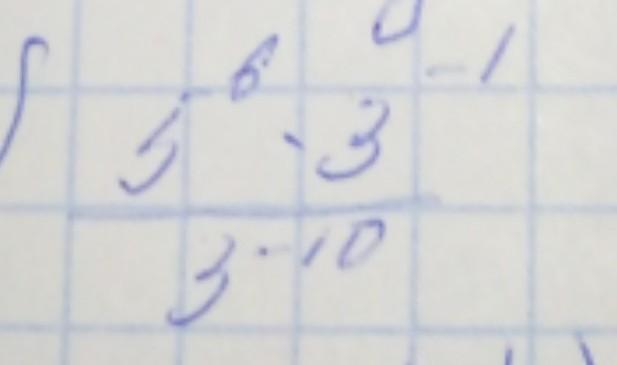 5^{-6} · 3^{-1}
3^{-10}